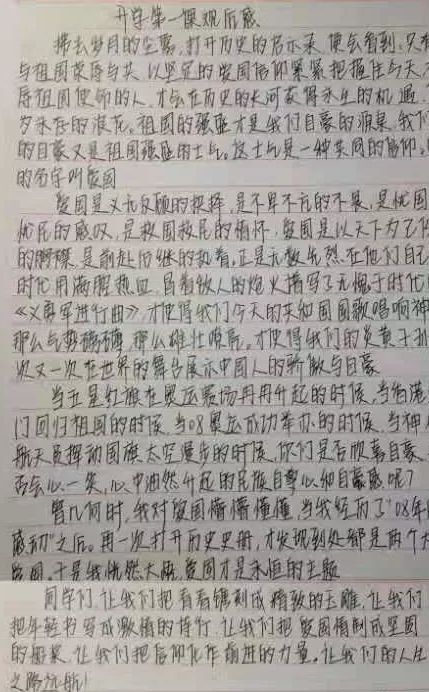 开学第一课观后感
拂去岁月的尘雾，打开历史的启示录，便会看到，只有
与祖国荣辱与共，以坚定的爱国信仰紧紧把握住与天
辱祖国使命的人，才会在历史的长河获得永生的机遇，
为永存的浪花。祖国的强盛才是我们自豪的源泉，我们
的自豪又是祖国强盛的士气。这士气是一种共同的信仰，
的名字叫爱国
爱国是义无反顾的抉择，是不卑不亢的不畏，是忧国
忧民的感叹，是救国救民的情怀，爱国是以天下为己任
的胸襟，是前赴后继的执着，正是无数先烈，在他们自己
时代用满腔热血，冒着敌人的炮火描写了无愧于时代
《义勇军进行曲》，才使得我们今天的共和国国歌唱响神
那么气势磅礴，那么雄壮嘹亮。才使得我们的炎黄子孙
次又一次在世界的舞台展示中国人的骄傲与自豪
当五星红旗在奥运赛场冉冉升起的时候，当香港
门回归祖国的时候，当08奥运成功举办的时候，当神
航天员挥动国旗太空漫步的时候，你们是否欣喜自豪
否会心一笑，心中油然升起的民族自尊心和自豪感呢？
曾几何时，我对爱国懵懵懂懂，当我经历了"08年
感动"之后。再一次打开历史史册，才发现到处都是两个大
爱国，于是我恍然大悟，爱国才是永恒的主题
同学们，让我们把青春镌刻成精致的玉雕，让我们
把年轻书写成激情的诗行，让我们把爱国情制成坚固
的船桨，让我们把信仰化作前进的力量，让我们的人生
之路远航！